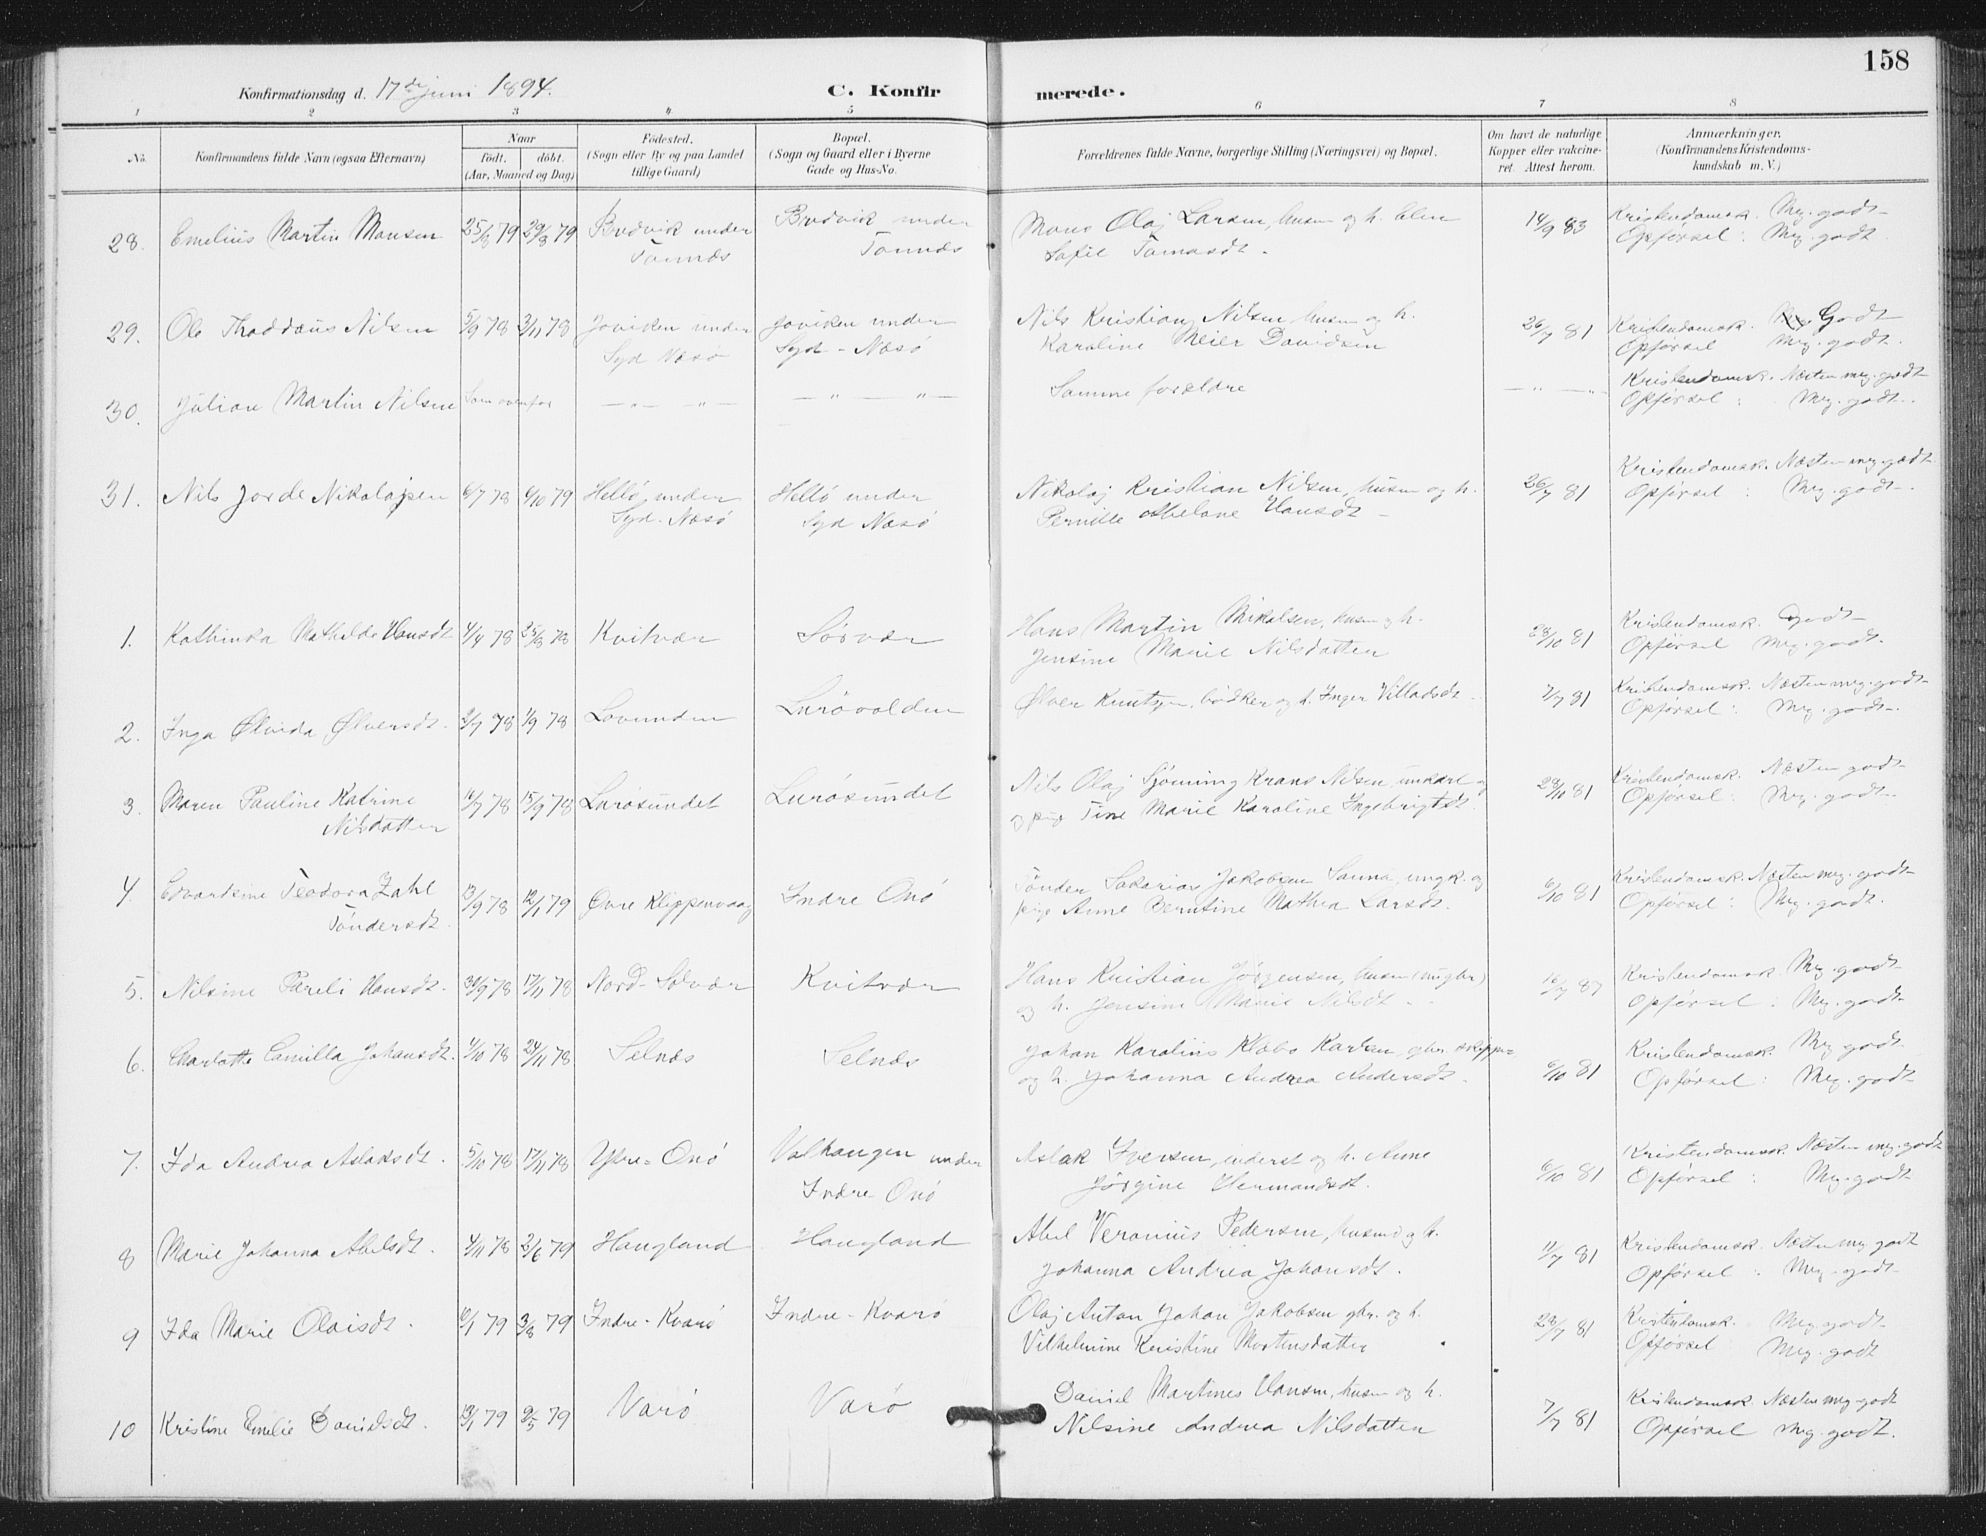 158
Konfirmationsdag d. 17de juni 1894. C. Konfirmerede.
1 2 3 4 5 6 7 8
No. Konfirmandens fulde Navn (ogsaa Efternavn) Naar født. døbt. (Aar, Maaned og Dag) Fødested. (Sogn eller By og paa Landet tillige Gaard) Bopæl. (Sogn og Gaard eller i Byerne Gade og Hus-No. Forældrenes fulde Navne, borgerlige Stilling (Næringsvei) og Bopæl. Om havt de naturlige Kopper eller vakcineret. Attest herom. Anmærkninger. (Konfirmandens Kristendomskundskab m. V.)
28. Emelius Martin Monsen 79 79 Bredvik under Bredvik under Mons Olaj Larsen, husm og h. Elen 14/9 83 Kristendomsk. Meg. godt
Tonnæs Tonnæs Sofie Tomasdt. Opførsel: Meg. godt
29. Ole Thaddæus Nilsen 5/9 78 3/11 78 Joviken under Joviken under Nils Kristian Nilsen, husm og h. 26/7 81 Kristendomsk. Godt
Syd Næsø Syd-Næsø Karoline Meier Davidsen Opførsel Meg. godt.
30. Julian Martin Nilsen Som ovenfor — „ — „ — — „ — „ — Samme forældre — „ — „ Kristendomsk. Næsten meg. godt
Opførsel: Meg. godt.
31. Nils Jorde Nikolajsen 6/7 78 6/10 79 Hellø under Hellø under Nikolaj Kristian Nilsen, husm og h. 26/7 81 Kristendomsk. Næsten meg godt
Syd-Næsø Syd Næsø Pernille Abelone Hansdt Opførsel: Meg. godt.
1. Kathinka Mathilde Hansdt 4/4 78 25/8 78 Kvitvær Sørvær Hans Martin Mikalsen, husm og h. 28/10 81 Kristendomsk. Godt
Jensine Marie Nilsdatter Opførsel Meg. godt.
2. Inga Ølvida Ølversdt. 78 1/9 78 Lovunden Lurøvolden Ølver Knutsen, bødker og h. Inger Villadsdt 7/7 81 Kristendomsk. Næsten meg. godt
Opførsel: Meg. godt.
3. Maren Pauline Katrine 78 15/9 78 Lurøsundet Lurøsundet Nils Olaj Hjøming Krans Nilsen, unkarl og 81 Kristendomsk. Næsten godt
Nilsdatter pige Tine Marie Karoline Ingebrigtsdt. Opførsel: Meg. godt
4. Edvardsine Teodora Zahl 13/9 78 12/1 79 Øvre Klippenvaag Indre Onø Tønder Sakarias Jakobsen Sauna, ungk. og 6/10 81 Kristendomsk. Næsten meg. godt
Tøndersdt. pige Anne Berntine Mathea Larsdt. Opførsel: Meg. godt.
5. Nilsine Pareli Hansdt. 78 17/11 78 Nord-Solvær Kvitvær Hans Kristian Jørgensen, husm (nu gbr) 87 Kristendomsk. Meg. godt
og h. Jensine Marie Nilsdt. Opførsel: Meg. godt
6. Charlotte Camilla Johansdt. 4/10 78 24/11 78 Selnæs Selnæs Johan Karolius Klæbo Karlsen, gbr. skipper 6/10 81 Kristendomsk. Meg godt
og h. Johanna Andrea Andersdt. Opførsel: Meg. godt
7. Ida Andrea Aslaksdt. 5/10 78 17/11 78 Ytre-Onø Valhaugen under Aslak Iversen, inderst og h. Anne 6/10 81 Kristendomsk. Næsten meg. godt
Indre Onø Jørgine Hermandsdt. Opførsel: Meg. godt
8 Marie Johanna Abelsdt. 4/11 78 2/6 79 Haugland Haugland Abel Veronius Pedersen, husmd og h. 11/7 81 Kristendomsk. Næsten meg godt
Johanna Andrea Johansdt. Opførsel: Meg. godt
9 Ida Marie Olaisdt. 6/1 79 3/8 79 Indre-Kvarø Indre-Kvarø Olaj Anton Johan Jakobsen gbr. og h. 28/7 81 Kristendomsk. Meg. godt
Vilhelmine Kristine Mortensdatter Opførsel Meg. godt
10 Kristine Emelie Danielsdt. 79 2/5 79 Varø Varø Daniel Martines Hansen, husm og h. 7/7 81 Kristendomsk. Næsten meg. godt
Nilsine Andrea Nilsdatter Opførsel Meg. godt.